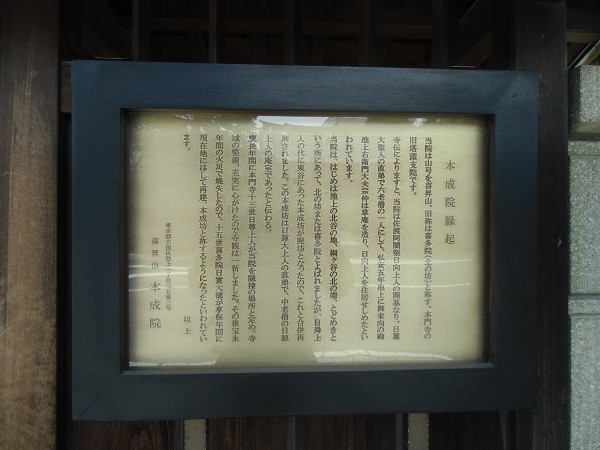 本成院縁起
当院は山号を喜昇山、旧称は喜多院（北の坊）と称す。本門寺の
旧塔頭支院です。
寺伝によりますと、当院は佐渡阿闍梨日向上人の開基なり。日蓮
大聖人の直弟で六老僧の一人にして、弘安五年池上に御来向の砌
池上右衛門大夫宗仲は草庵を造り、日向上人を住居せしめたとい
われています。
当院は、はじめは池上の北谷の地、桐ヶ谷の北の端、とどめきと
いう所にあって、北の坊または喜多院とよばれましたが、日舜上
人の代に東谷にあった本成坊が廃坊となったので、これと合併再
興されました。この本成坊は日蓮大上人の直弟で、中老僧の日源
上人の庵室であったと伝わる。
慶長年間に本門寺十三世日尊上人が当院を隠棲の場所と定め、寺
域の整備、充実に心がけたので寺観は一新しました。その後宝永
年間の火災で焼失したので、十五世喜多院日實大徳が享保年間に
現在地に移して再建、本成坊と称するようになったといわれてい
ます。
以上
東京都大田区池上一丁目三五番三号
喜昇山 本成院